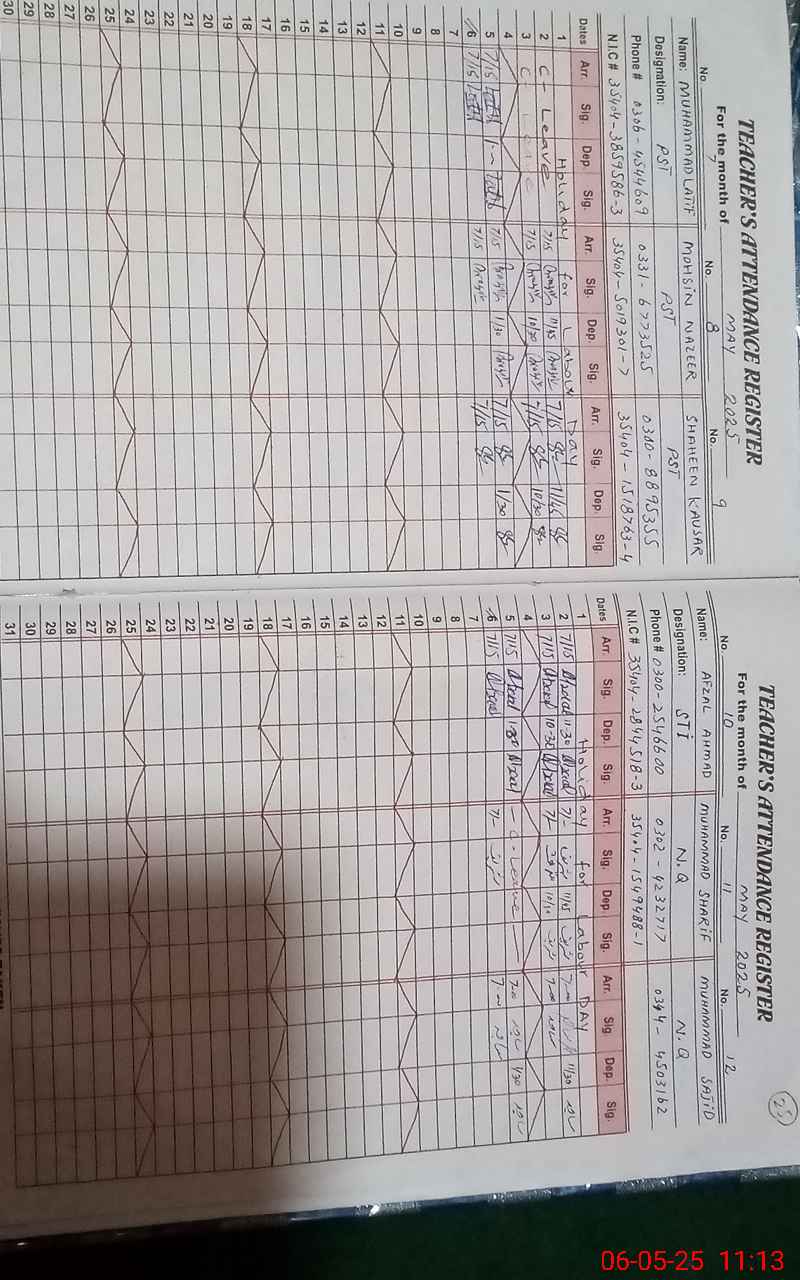 TEACHER'S ATTENDANCE REGISTER
For the month of MAY 2025
No. 7 No. 8 No. 9
Name: MUHAMMAD LATIF MOHSIN NAZEER SHAHEEN KAUSAR
Designation: PST PST PST
Phone # 0306-4544609 0331-6773525 0300-8895355
N.I.C # 35404-3859586-3 35404-5019301-7 35404-1518763-4
Dates Arr. Sig. Dep. Sig. Arr. Sig. Dep. Sig. Arr. Sig. Dep. Sig.
1 Holiday for Labour Day
2 C-Leave 7/15 11/45 7/15 11/45
3 C-Leave 7/15 10/30 7/15 10/30
4
5 7/15 7/15 1/30 7/15 1/30
6 7/15 7/15 7/15
7
8
9
10
11
12
13
14
15
16
17
18
19
20
21
22
23
24
25
26
27
28
29
30
TEACHER'S ATTENDANCE REGISTER
25
For the month of MAY 2025
No. 10 No. 11 No. 12
Name: AFZAL AHMAD MUHAMMAD SHARIF MUHAMMAD SAJID
Designation: STI N.Q N.Q
Phone # 0300-2546600 0302-4232717 0344-4503162
N.I.C # 35404-2844518-3 35404-1549488-1
Dates Arr. Sig. Dep. Sig. Arr. Sig. Dep. Sig. Arr. Sig. Dep. Sig.
1 Holiday for Labour DAY
2 7/15 11:30 7/- 11/45 7-00 11/30
3 7/15 10:30 7/- 10/30 7-00
4
5 7/15 1:30 -C-Leave- 7-00 1/30
6 7/15 7/- 7-00
7
8
9
10
11
12
13
14
15
16
17
18
19
20
21
22
23
24
25
26
27
28
29
30
31
06-05-25 11:13